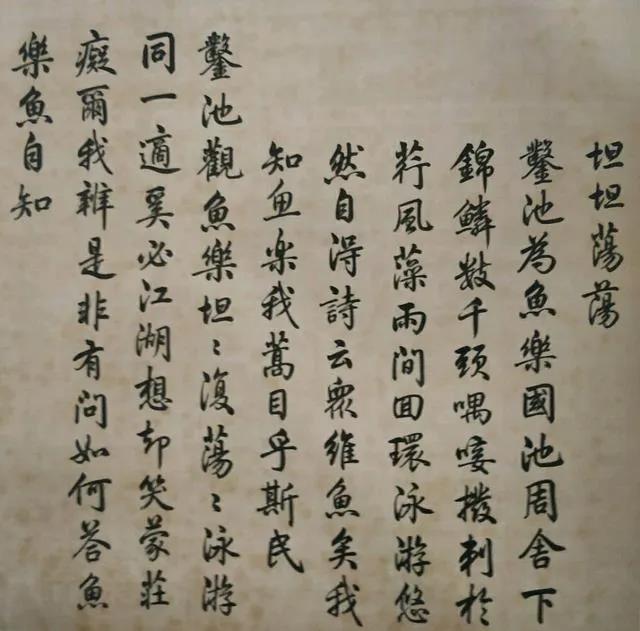 坦坦蕩蕩
鑿池為魚樂國池周舍下
錦鱗數千頭喁唼撥刺於
荇風藻雨間回環泳游悠
然自得詩云眾維魚矣我
知魚楽我蒿目乎斯民
鑿池觀魚樂坦〻復蕩〻泳游
同一適奚必江湖想却笑蒙莊
癡爾我辨是非有問如何答魚
樂魚自知